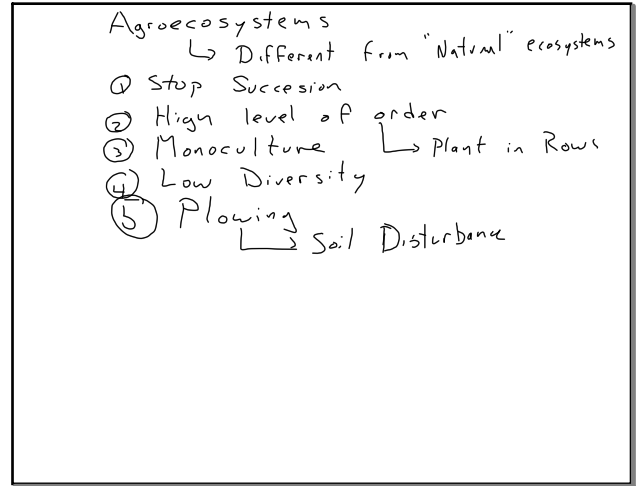 Agroecosystems
↳ Different from "Natural" ecosystems
① Stop Succesion
② High level of order
③ Monoculture ↳ Plant in Rows
④ Low Diversity
⑤ Plowing
↳ Soil Disturbance